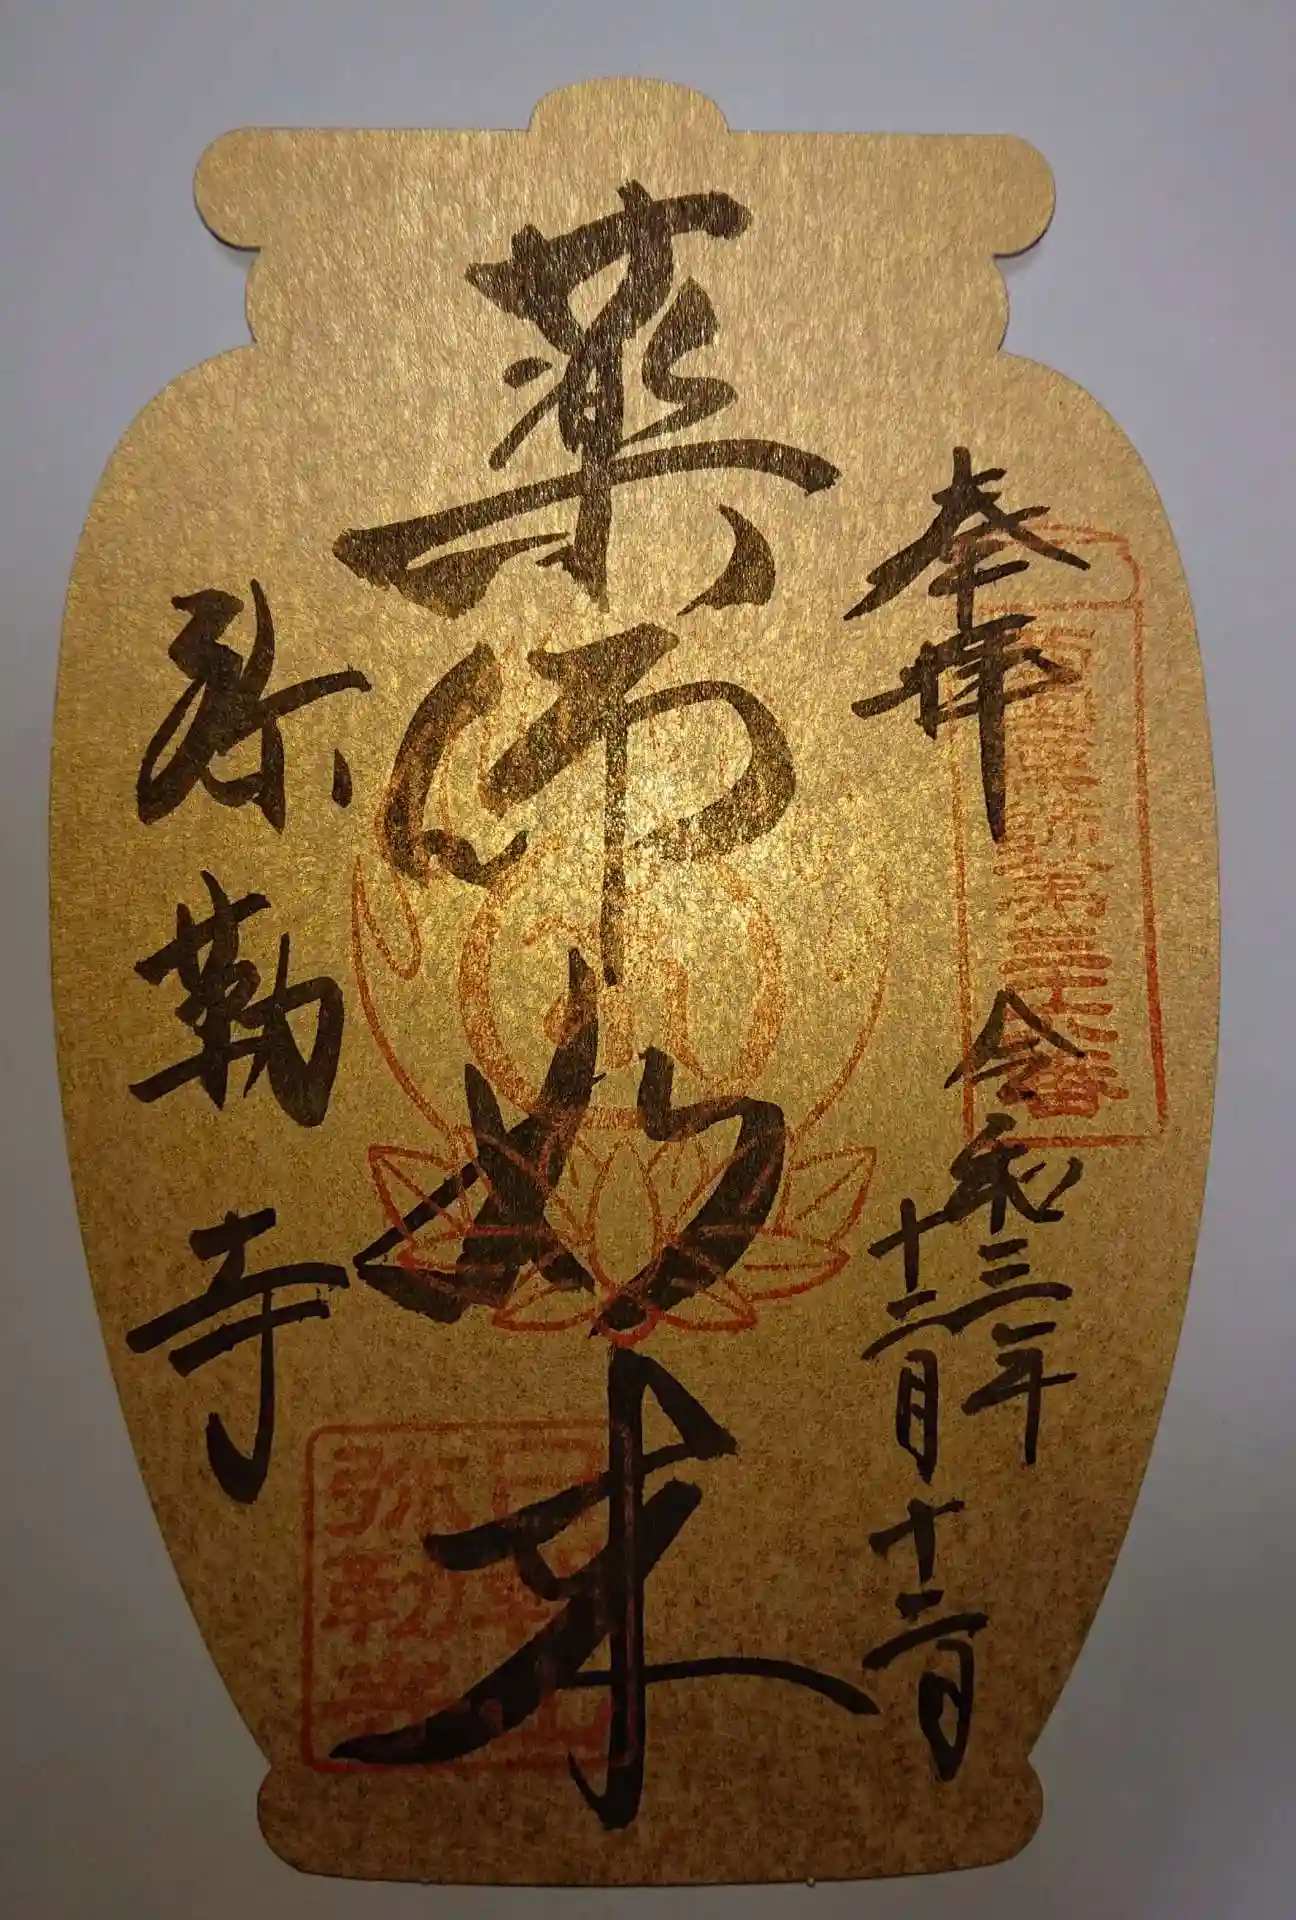 奉拝
令和三年
十二月十二日
薬師如来
弥勒寺
弥勒寺